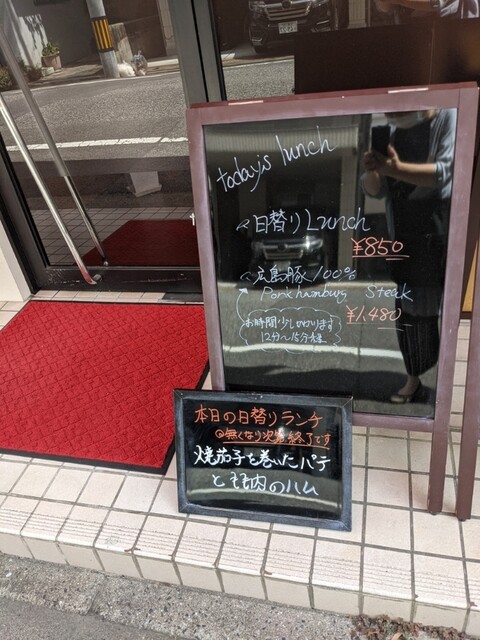 today's lunch
日替りLunch
¥850
広島豚100%
Pork hamburg Steak
¥1,480
お時間少しかかります
12分〜15分程
本日の日替りランチ
◎無くなり次第終了です
焼茄子を巻いたパテ
とモモ肉のハム